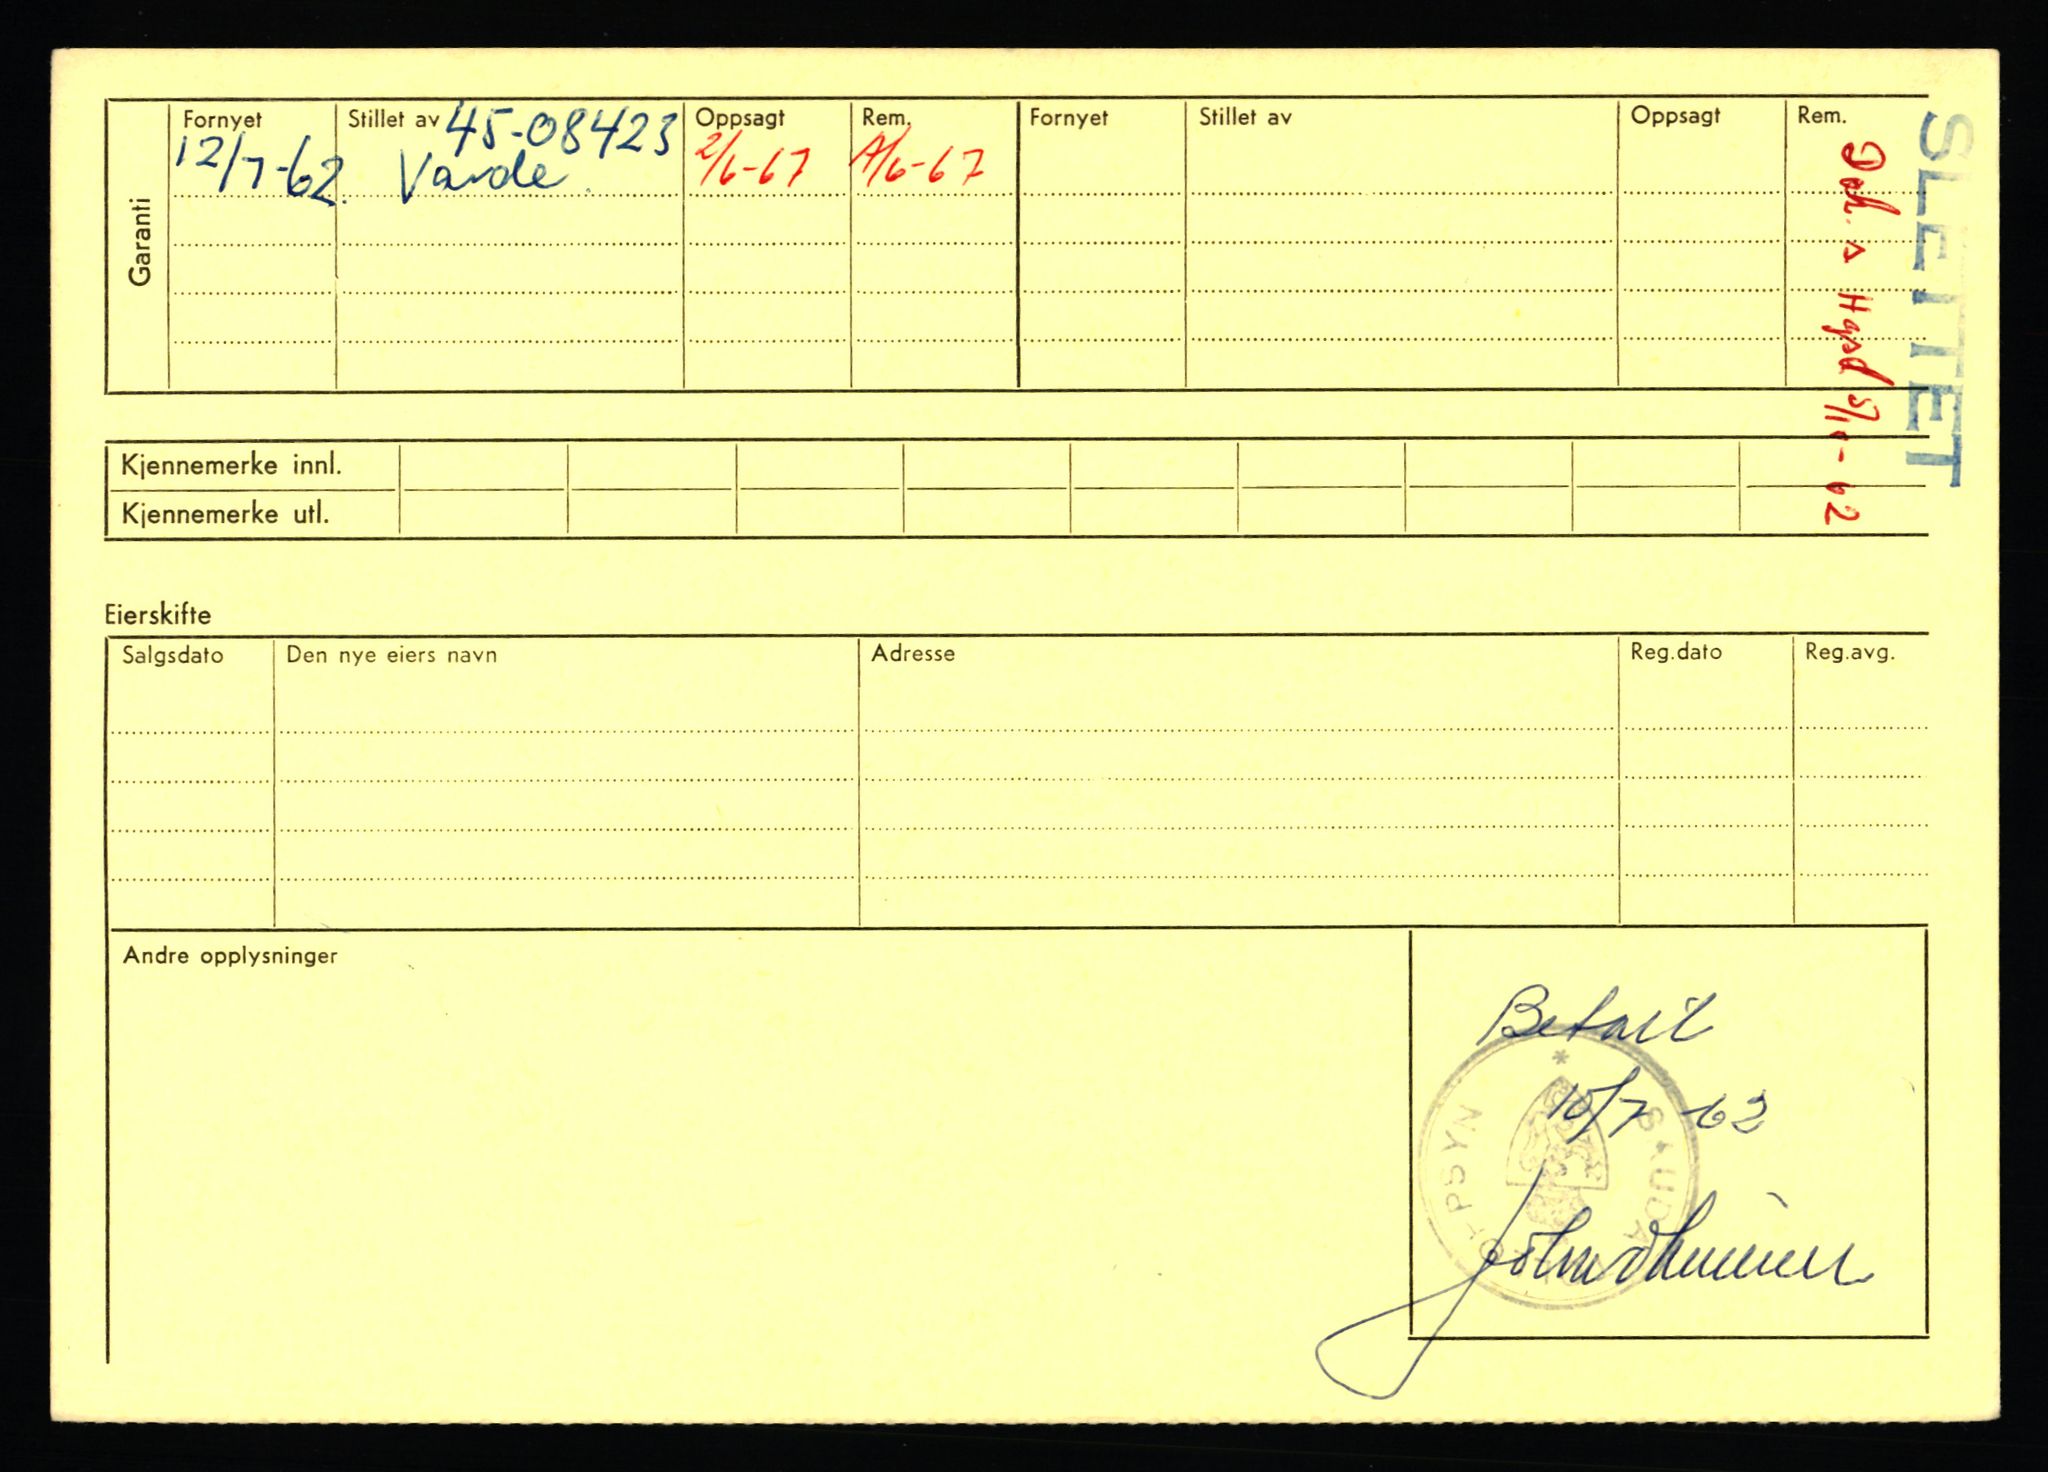 Garanti
Fornyet Stillet av 45-08423 Oppsagt Rem. Fornyet Stillet av Oppsagt Rem.
12/7-62. Varde. 2/6-67 A/6-67
SLETTET
s Hgsd 5/10-62
Kjennemerke innl.
Kjennemerke utl.
Eierskifte
Salgsdato Den nye eiers navn Adresse Reg.dato Reg.avg.
Andre opplysninger
Betalt
10/7 -62